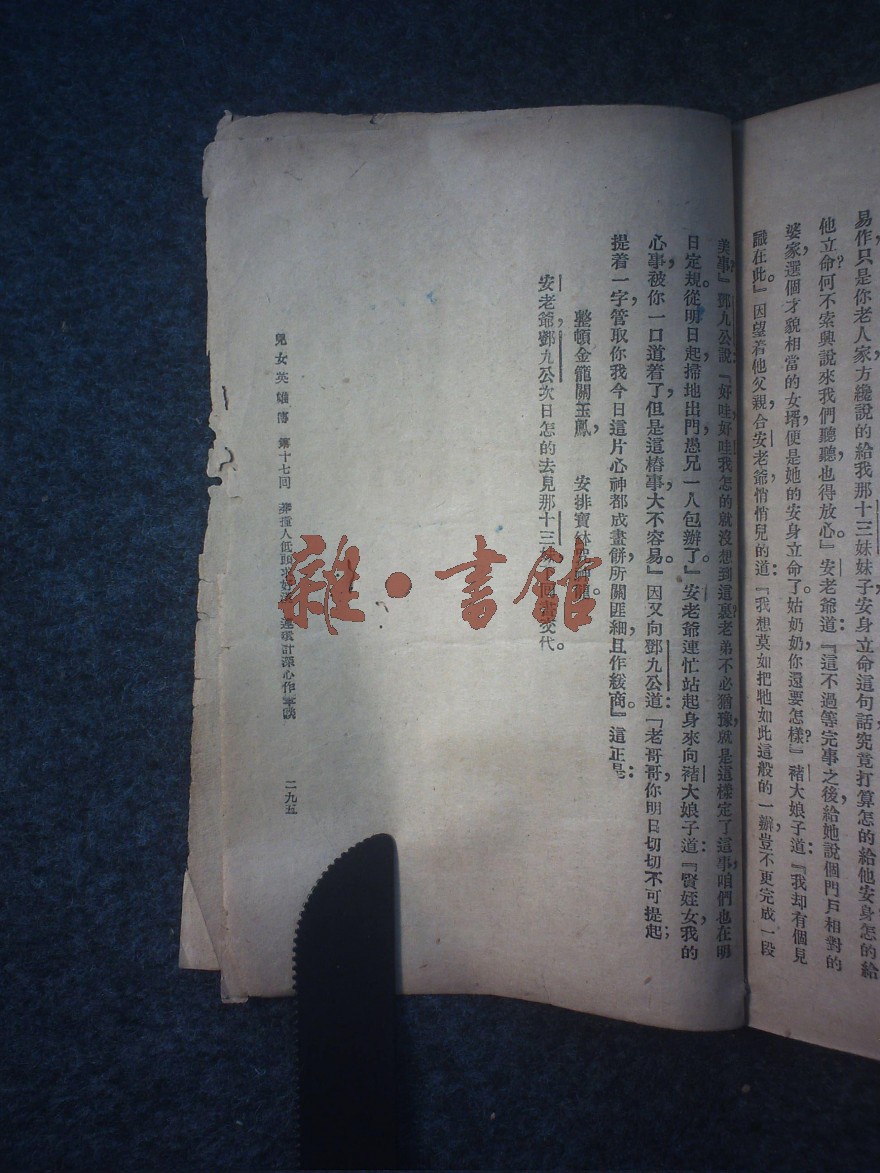 易作只是你老人家方纔說的給我那十三妹妹子安身立命這句話究竟打算怎的給他安身怎的給
他立命？何不索興說來我們聽聽也得放心』安老爺道：『這不過等完事之後，給她說個門戶相對的
婆家，選個才貌相當的女壻，便是她的安身立命了。姑奶奶，你還要怎樣？』褚大娘子道：『我却有個見
識在此』因望着他父親合安老爺悄悄兒的道：『我想莫如把牠如此這般的一辦，豈不更完成一段
美事』鄧九公說：『好哇好哇，我怎的就沒想到這裏老弟不必猶豫，就是這樣定了這事，咱們也在明
日定規。從明日起，掃地出門，愚兄一人包辦了。』安老爺連忙站起身來，向褚大娘子道：『賢姪女，我的
心事，被你一口道着了，但是這樁事大不容易。』因又向鄧九公道：『老哥哥，你明日切切不可提起；
提着一字，管取你我今日這片心神都成畫餅，所關匪細，且作緩商。』這正是：
整頓金籠關玉鳳，　安排寶鉢
安老爺，鄧九公次日怎的去見那十三妹，下回書交代。
兒女英雄傳　第十七回　低頭求　連環計深心作筆談　二九五
雜·書館